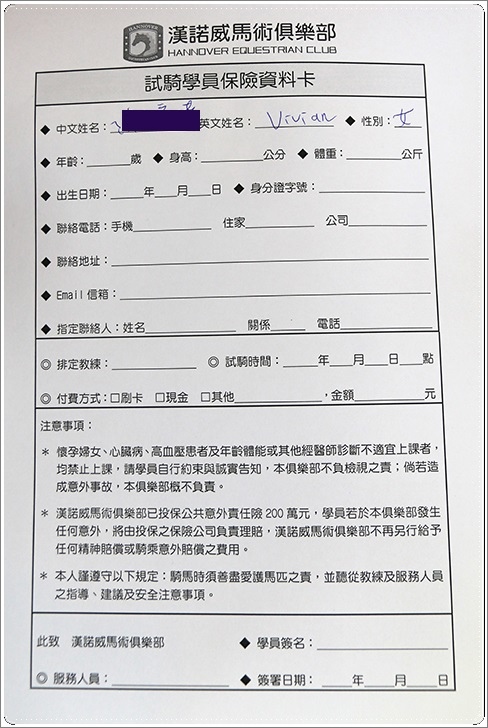 HANNOVER
漢諾威馬術俱樂部
HANNOVER EQUESTRIAN CLUB
試騎學員保險資料卡
◆ 中文姓名： 英文姓名：Vivian ◆ 性別：女
◆ 年齡：____歲 ◆ 身高：____公分 ◆ 體重：____公斤
◆ 出生日期：____年____月____日 ◆ 身分證字號：____
◆ 聯絡電話：手機____ 住家____ 公司____
◆ 聯絡地址：____
◆ Email 信箱：____
◆ 指定聯絡人：姓名____ 關係____ 電話____
◎ 排定教練：____ ◎ 試騎時間：____年____月____日____點
◎ 付費方式：□刷卡 □現金 □其他____，金額____元
注意事項：
* 懷孕婦女、心臟病、高血壓患者及年齡體能或其他經醫師診斷不適宜上課者，
均禁止上課，請學員自行約束與誠實告知，本俱樂部不負檢視之責；倘若造
成意外事故，本俱樂部概不負責。
* 漢諾威馬術俱樂部已投保公共意外責任險 200 萬元，學員若於本俱樂部發生
任何意外，將由投保之保險公司負責理賠，漢諾威馬術俱樂部不再另行給予
任何精神賠償或騎乘意外賠償之費用。
* 本人謹遵守以下規定：騎馬時須善盡愛護馬匹之責，並聽從教練及服務人員
之指導、建議及安全注意事項。
此致 漢諾威馬術俱樂部 ◆ 學員簽名：____
◎ 服務人員：____ ◆ 簽署日期：____年____月____日